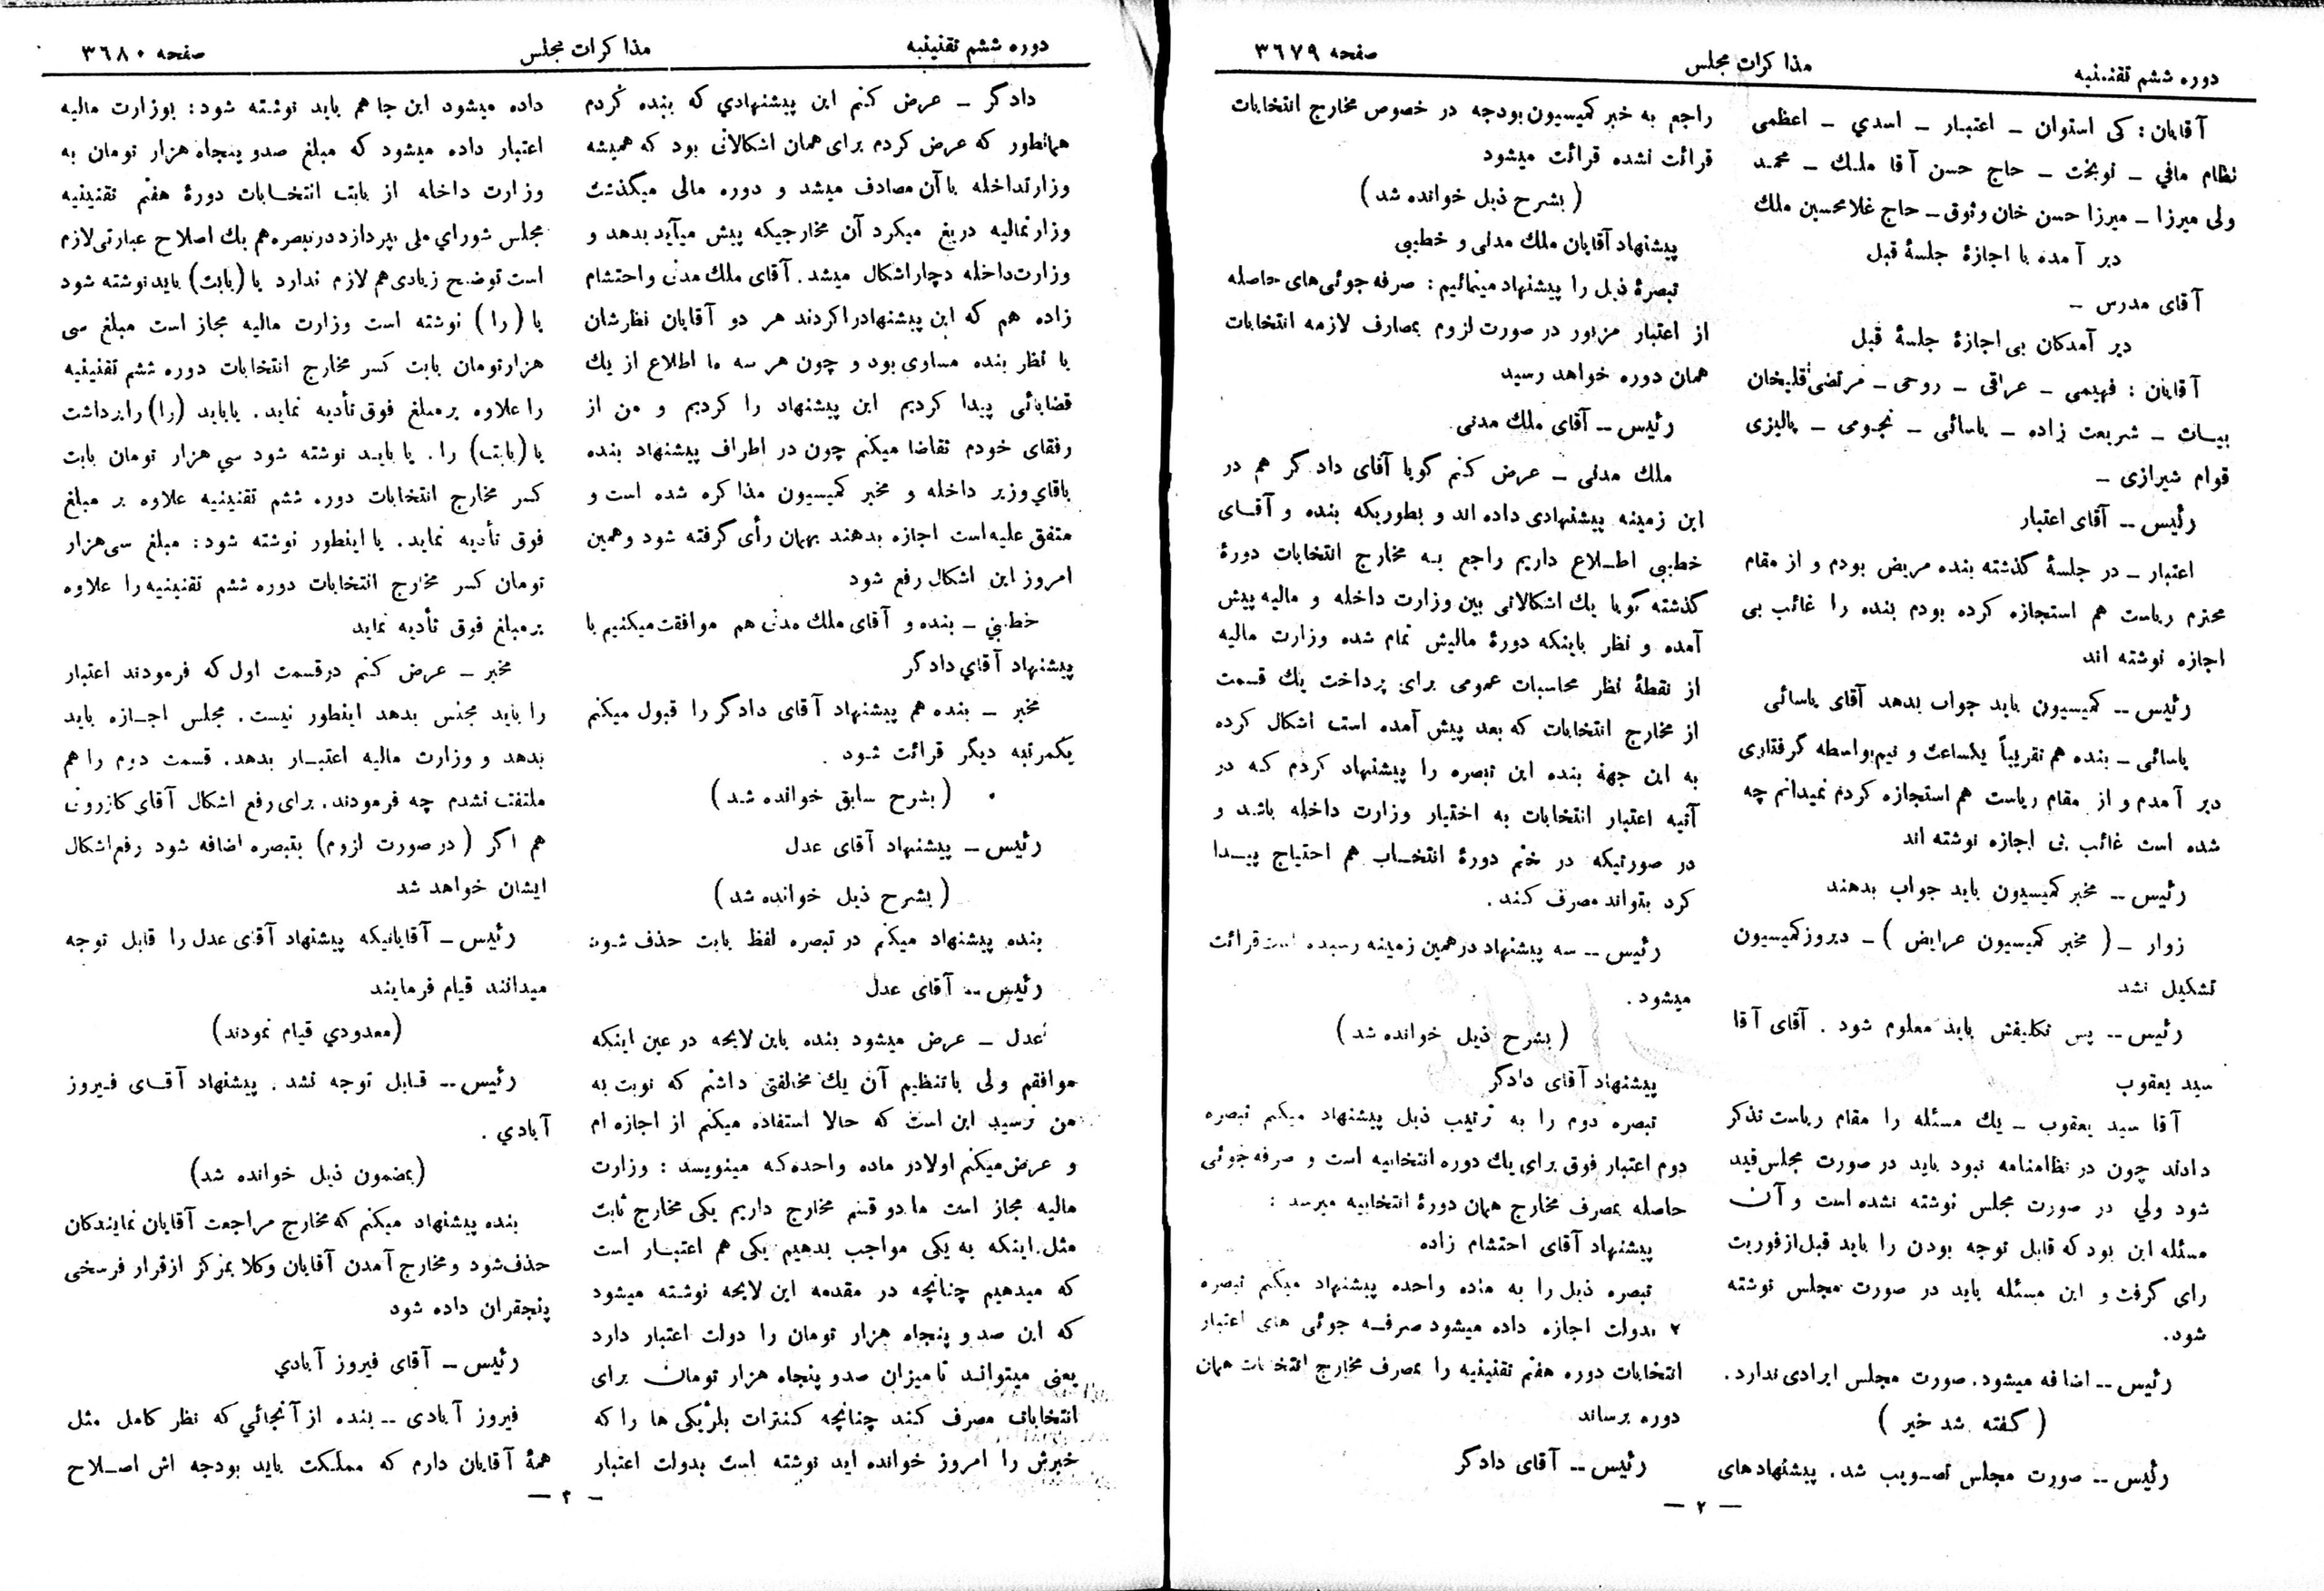 دوره ششم تقنینیه
مذاکرات مجلس
صفحه ۳٦۷۹
آقایان : کی استوان ــ اعتبار ــ اسدي ــ اعظمی
نظام مافي ــ نوبخت ــ حاج حسن آقا ملك ــ محمد
ولی میرزا ــ میرزا حسن خان وثوق ــ حاج غلامحسین ملك
دیر آمده با اجازهٔ جلسهٔ قبل
آقای مدرس ــ
دیر آمدکان بی اجازهٔ جلسهٔ قبل
آقایان : فهیمی ــ عراقی ــ روحی ــ مرتضی قلیخان
بیات ــ شریعت زاده ــ یاسائی ــ نجومی ــ پالیزی
قوام شیرازی ــ
رئیس ــ آقای اعتبار
اعتبار ــ در جلسهٔ گذشته بنده مریض بودم و از مقام
محترم ریاست هم استجازه کرده بودم بنده را غائب بی
اجازه نوشته اند
رئیس ــ کمیسیون باید جواب بدهد آقای یاسائی
یاسائی ــ بنده هم تقریباً یکساعت و نیم بواسطه گرفتاری
دیر آمدم و از مقام ریاست هم استجازه کردم نمیدانم چه
شده است غائب بی اجازه نوشته اند
رئیس ــ مخبر کمیسیون باید جواب بدهند
زوار ــ ( مخبر کمیسیون عرایض ) ــ دیروز کمیسیون
تشکیل نشد
رئیس ــ پس تکلیفش باید معلوم شود . آقای آقا
سید یعقوب
آقا سید یعقوب ــ یك مسئله را مقام ریاست تذکر
دادند چون در نظامنامه نبود باید در صورت مجلس قید
شود ولي در صورت مجلس نوشته نشده است و آن
مسئله این بود که قابل توجه بودن را باید قبل از فوریت
رای گرفت و این مسئله باید در صورت مجلس نوشته
شود.
رئیس ــ اضافه میشود. صورت مجلس ایرادی ندارد.
( گفته شد خیر )
رئیس ــ صورت مجلس تصویب شد. پیشنهادهای
راجع به خبر کمیسیون بودجه در خصوص مخارج انتخابات
قرائت نشده قرائت میشود
( بشرح ذیل خوانده شد )
پیشنهاد آقایان ملك مدنی و خطیبی
تبصرهٔ ذیل را پیشنهاد مینمائیم : صرفه جوئی های حاصله
از اعتبار مزبور در صورت لزوم بمصارف لازمه انتخابات
همان دوره خواهد رسید
رئیس ــ آقای ملك مدنی
ملك مدنی ــ عرض کنم گویا آقای دادگر هم در
این زمینه پیشنهادی داده اند و بطوریکه بنده و آقای
خطیبی اطلاع داریم راجع به مخارج انتخابات دورهٔ
گذشته گویا یك اشکالاتی بین وزارت داخله و مالیه پیش
آمده و نظر باینکه دورهٔ مالیش تمام شده وزارت مالیه
از نقطهٔ نظر محاسبات عمومی برای پرداخت یك قسمت
از مخارج انتخابات که بعد پیش آمده است اشکال کرده
به این جهة بنده این تبصره را پیشنهاد کردم که در
آتیه اعتبار انتخابات به اختیار وزارت داخله باشد و
در صورتیکه در ختم دورهٔ انتخاب هم احتیاج پیدا
کرد بتواند مصرف کند .
رئیس ــ سه پیشنهاد در همین زمینه رسیده است قرائت
میشود .
( بشرح ذیل خوانده شد )
پیشنهاد آقای دادگر
تبصره دوم را به ترتیب ذیل پیشنهاد میکنم تبصره
دوم اعتبار فوق برای یك دوره انتخابیه است و صرفه جوئی
حاصله بمصرف مخارج همان دورهٔ انتخابیه میرسد :
پیشنهاد آقای احتشام زاده
تبصره ذیل را به ماده واحده پیشنهاد میکنم تبصره
۲ بدولت اجازه داده میشود صرفه جوئی های اعتبار
انتخابات دوره هفتم تقنینیه را بمصرف مخارج انتخابات همان
دوره برساند
رئیس ــ آقای دادگر
— ۲ —
دوره ششم تقنینیه
مذاکرات مجلس
صفحه ۳٦۸۰
دادگر ــ عرض کنم این پیشنهادي که بنده کردم
همانطور که عرض کردم برای همان اشکالاتی بود که همیشه
وزارتداخله با آن مصادف میشد و دوره مالی میگذشت
وزارتمالیه دریغ میکرد آن مخارجیکه پیش میآید بدهد و
وزارت داخله دچار اشکال میشد. آقای ملك مدنی و احتشام
زاده هم که این پیشنهاد را کردند هر دو آقایان نظرشان
با نظر بنده مساوی بود و چون هر سه ما اطلاع از یك
قضایائی پیدا کردیم این پیشنهاد را کردیم و من از
رفقای خودم تقاضا میکنم چون در اطراف پیشنهاد بنده
باقاي وزیر داخله و مخبر کمیسیون مذاکره شده است و
متفق علیه است اجازه بدهند بهمان رأی گرفته شود و همین
امروز این اشکال رفع شود
خطیبي ــ بنده و آقای ملك مدنی هم موافقت میکنیم با
پیشنهاد آقاي دادگر
مخبر ــ بنده هم پیشنهاد آقای دادگر را قبول میکنم
یکمرتبه دیگر قرائت شود .
( بشرح سابق خوانده شد )
رئیس ــ پیشنهاد آقای عدل
( بشرح ذیل خوانده شد )
بنده پیشنهاد میکنم در تبصره لفظ بابت حذف شود
رئیس ــ آقای عدل
عدل ــ عرض میشود بنده باین لایحه در عین اینکه
موافقم ولی با تنظیم آن یك مخالفتی داشتم که نوبت به
من نرسید این است که حالا استفاده میکنم از اجازه ام
و عرض میکنم اولا در ماده واحده که مینویسد : وزارت
مالیه مجاز است ما دو قسم مخارج داریم یکی مخارج ثابت
مثل اینکه به یکی مواجب بدهیم یکی هم اعتبار است
که میدهیم چنانچه در مقدمه این لایحه نوشته میشود
که این صد و پنجاه هزار تومان را دولت اعتبار دارد
یعنی میتواند تا میزان صد و پنجاه هزار تومان برای
انتخابات مصرف کند چنانچه کنترات بلژیکی ها را که
خبرش را امروز خوانده اید نوشته است بدولت اعتبار
داده میشود این جا هم باید نوشته شود : بوزارت مالیه
اعتبار داده میشود که مبلغ صد و پنجاه هزار تومان به
وزارت داخله از بابت انتخابات دورهٔ هفتم تقنینیه
مجلس شوراي ملی بپردازد در تبصره هم یك اصلاح عبارتی لازم
است توضیح زیادی هم لازم ندارد یا (بابت) باید نوشته شود
یا (را) نوشته است وزارت مالیه مجاز است مبلغ سی
هزار تومان بابت کسر مخارج انتخابات دوره ششم تقنینیه
را علاوه بر مبلغ فوق تأدیه نماید. یا باید (را) را برداشت
یا (بابت) را. یا باید نوشته شود سي هزار تومان بابت
کسر مخارج انتخابات دوره ششم تقنینیه علاوه بر مبلغ
فوق تأدیه نماید. یا اینطور نوشته شود : مبلغ سی هزار
تومان کسر مخارج انتخابات دوره ششم تقنینیه را علاوه
بر مبلغ فوق تأدیه نماید
مخبر ــ عرض کنم در قسمت اول که فرمودند اعتبار
را باید مجلس بدهد اینطور نیست. مجلس اجازه باید
بدهد و وزارت مالیه اعتبار بدهد. قسمت دوم را هم
ملتفت نشدم چه فرمودند. برای رفع اشکال آقاي کازرونی
هم اگر ( در صورت لزوم ) بتبصره اضافه شود رفع اشکال
ایشان خواهد شد
رئیس ــ آقایانیکه پیشنهاد آقای عدل را قابل توجه
میدانند قیام فرمایند
(معدودي قیام نمودند)
رئیس ــ قابل توجه نشد . پیشنهاد آقای فیروز
آبادي .
(بمضمون ذیل خوانده شد)
بنده پیشنهاد میکنم که مخارج مراجعت آقایان نمایندگان
حذف شود و مخارج آمدن آقایان وکلا بمرکز از قرار فرسخی
پنجقران داده شود
رئیس ــ آقای فیروز آبادي
فیروز آبادی ــ بنده از آنجائي که نظر کامل مثل
همهٔ آقایان دارم که مملکت باید بودجه اش اصلاح
— ۲ —